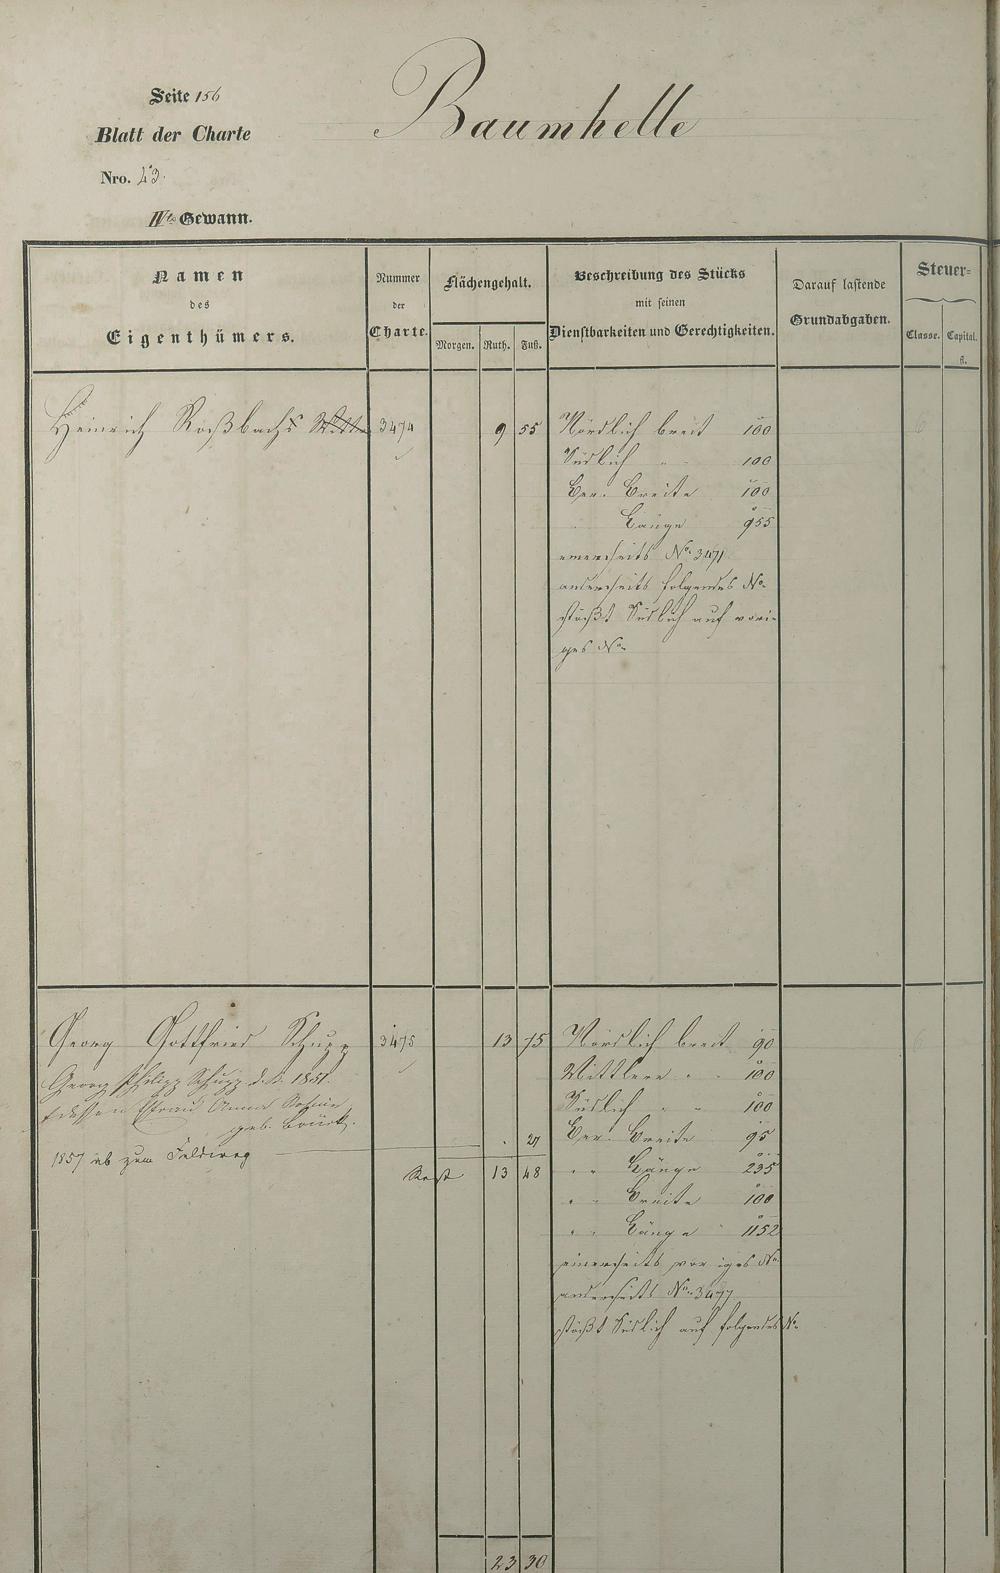 Seite 156
Baumhelle
Blatt der Charte
Nro. 43.
IVte Gewann.
Namen
des
Eigenthümers.
Nummer
der
Charte.
Flächengehalt.
Morgen. Ruth. Fuß.
Beschreibung des Stücks
mit seinen
Dienstbarkeiten und Gerechtigkeiten.
Darauf lastende
Grundabgaben.
Steuer=
Classe. Capital.
fl.
Heinrich Roßbachs Wittw 3474 9 55 Nördlich breit 100
Südlich " " 100
Ber. Breite 100
" Länge 955
einerseits No. 3471
anderseits folgendes No.
stößt Südlich auf vori-
ges No.
Georg Gottfried Schupp 3475 13 75 Nördlich breit 90
Georg Philipp Schupp d. d. 1851. Mittlere " " 100
& dessen Efrau Anna Südlich " " 100
geb. 27 Ber. Breite 95
1857 ab zum Feldweg
Rest 13 48 " " Länge 235
" " Breite 100
" " Länge 1152
einerseits voriges No.
anderseits No. 3477
stößt Südlich auf folgendes No.
23 30